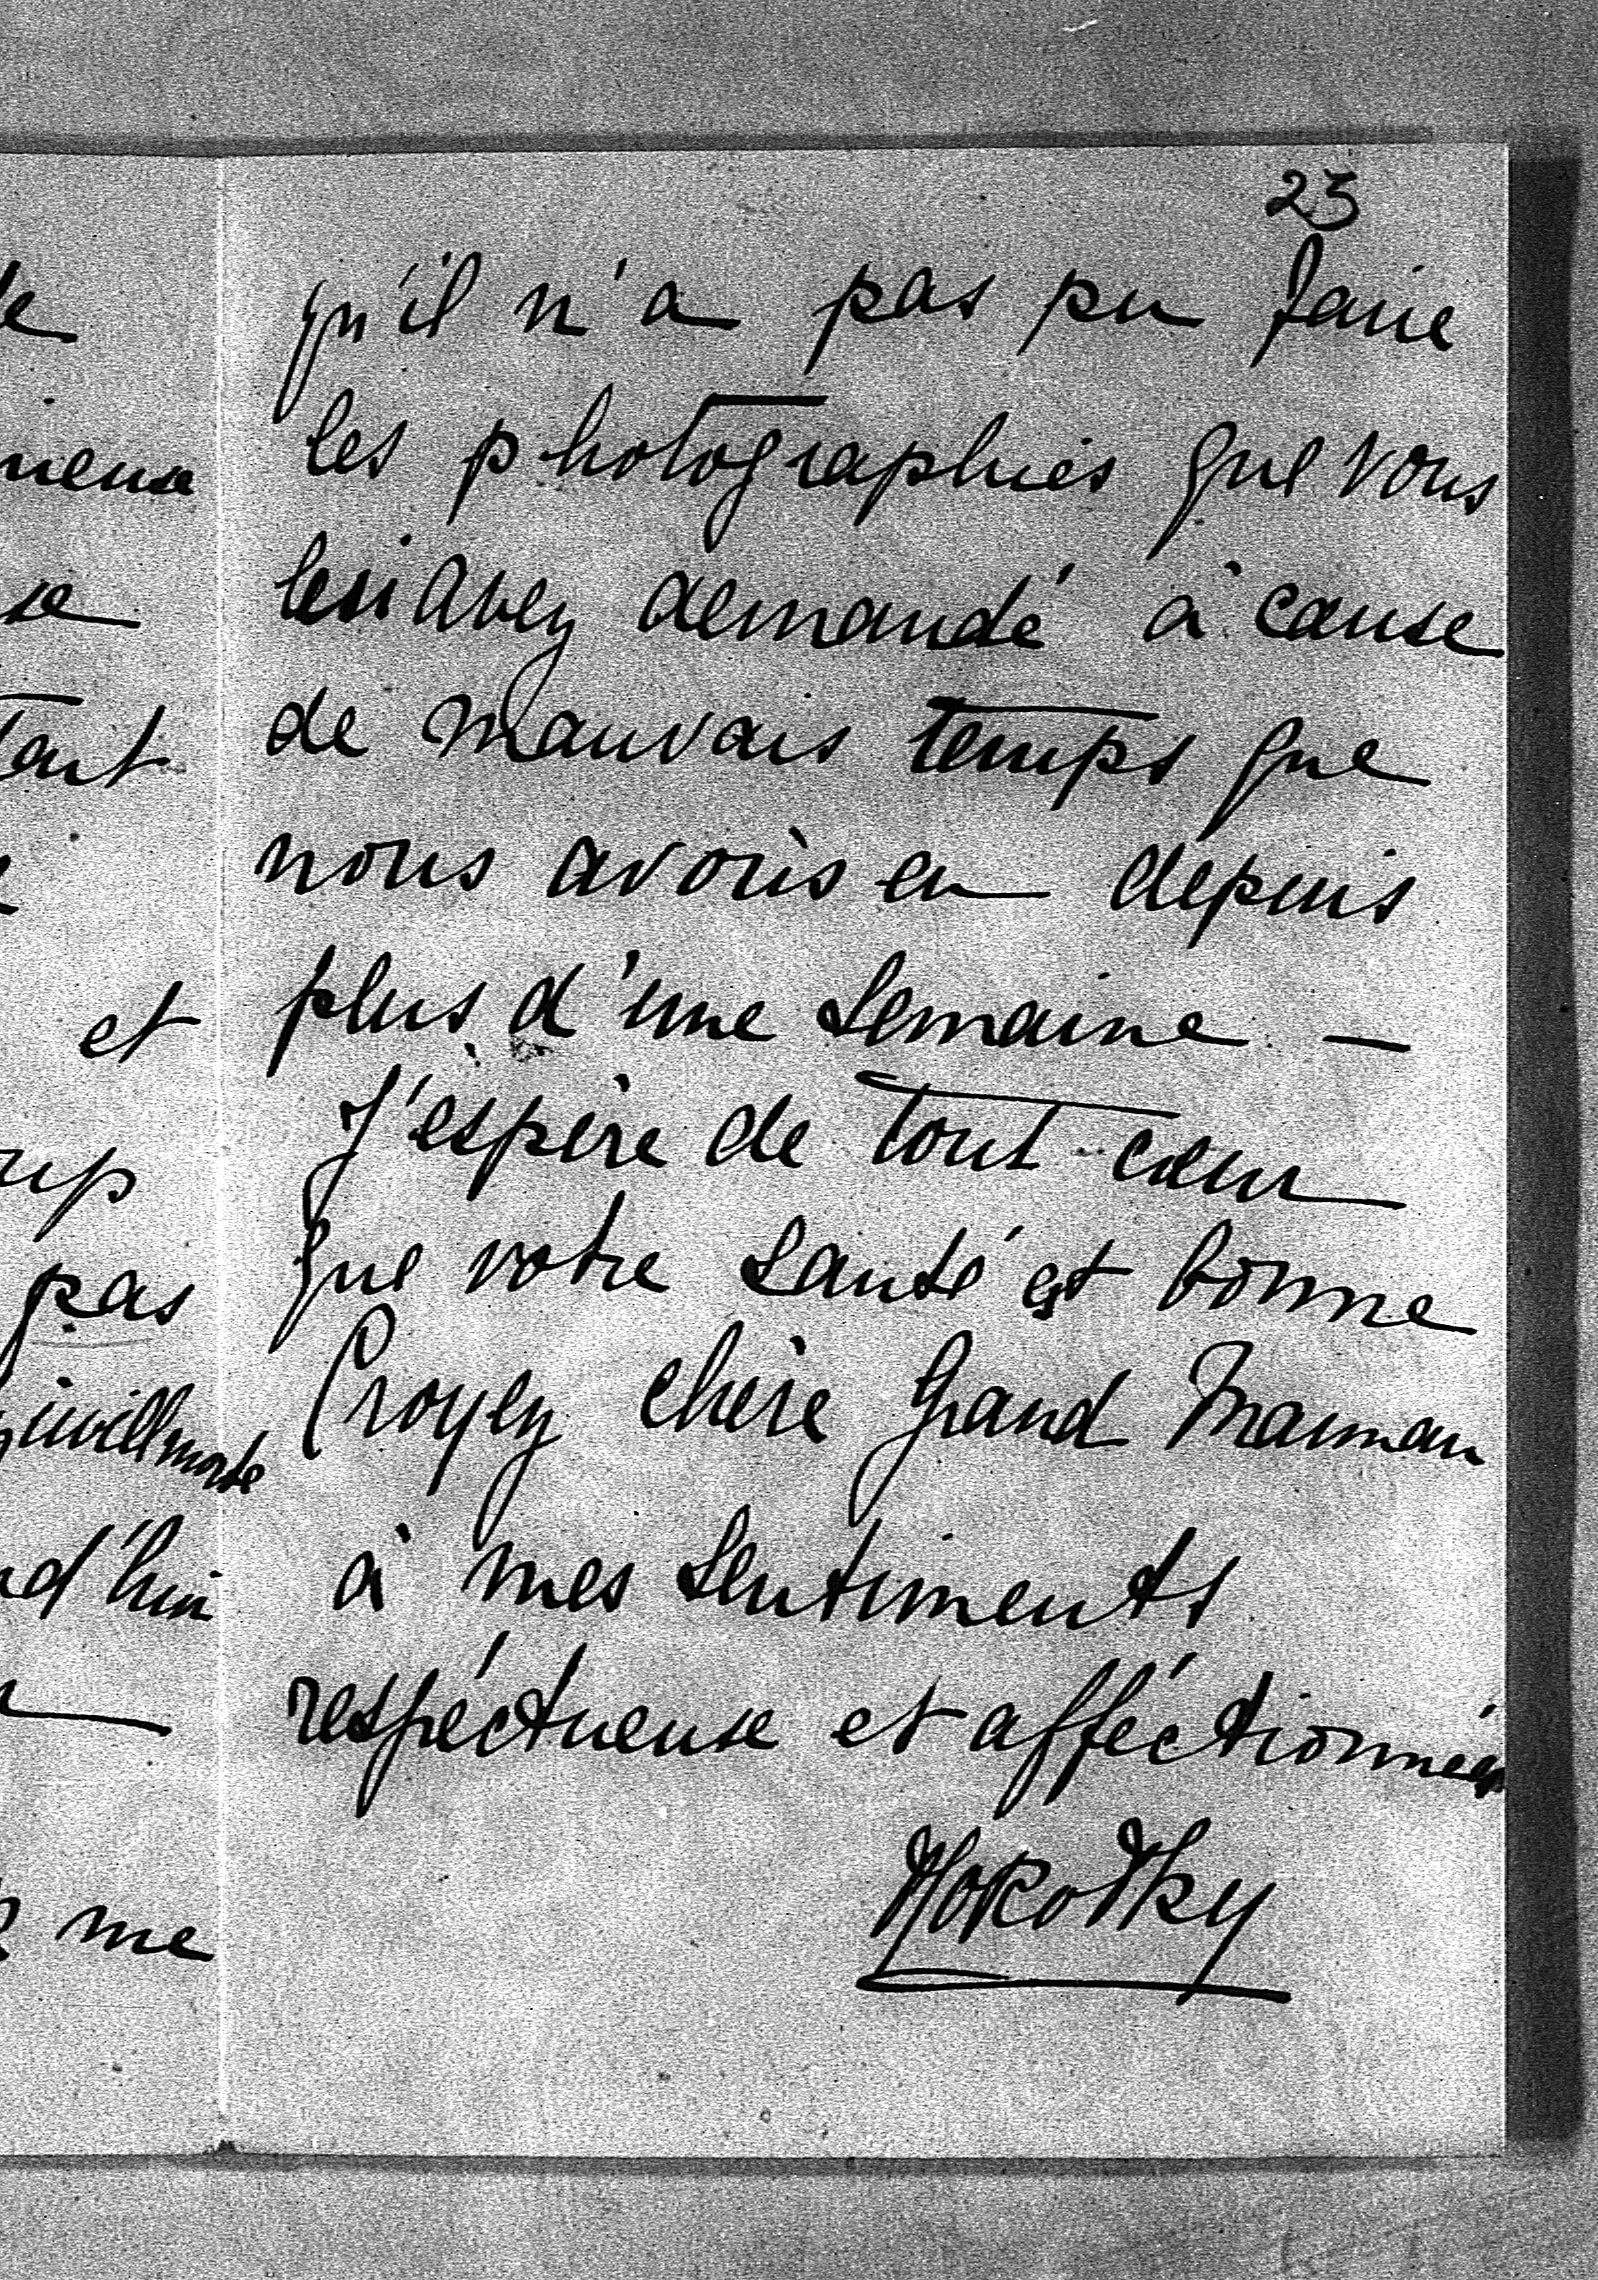 23
qu'il n'a pas pu faire
les photographies que vous
avez demandé à cause
de mauvais temps que
nous avons eu depuis
plus d'une semaine —
J'éspère de tout cœur
que votre santé est bonne
Croyez chère Grand Maman
à mes sentiments
respéctueuse et afféctionnées
et
pas
d'hui
me